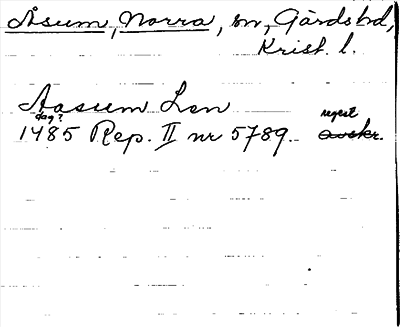 Åsum, Norra, sn, Gärds hd,
Krist. l.
Aasum Len
dag?
1485 Rep. II nr 5789. avskr.
regest